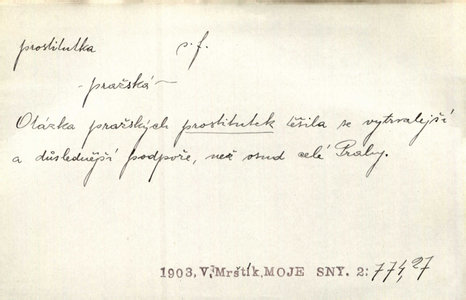 prostitutka s. f.
- pražská -
Otázka pražských prostitutek těšila se vytrvalejší
a důslednější podpoře, než osud celé Prahy.
1903, V. Mrštík, MOJE SNY. 2: 774, 27